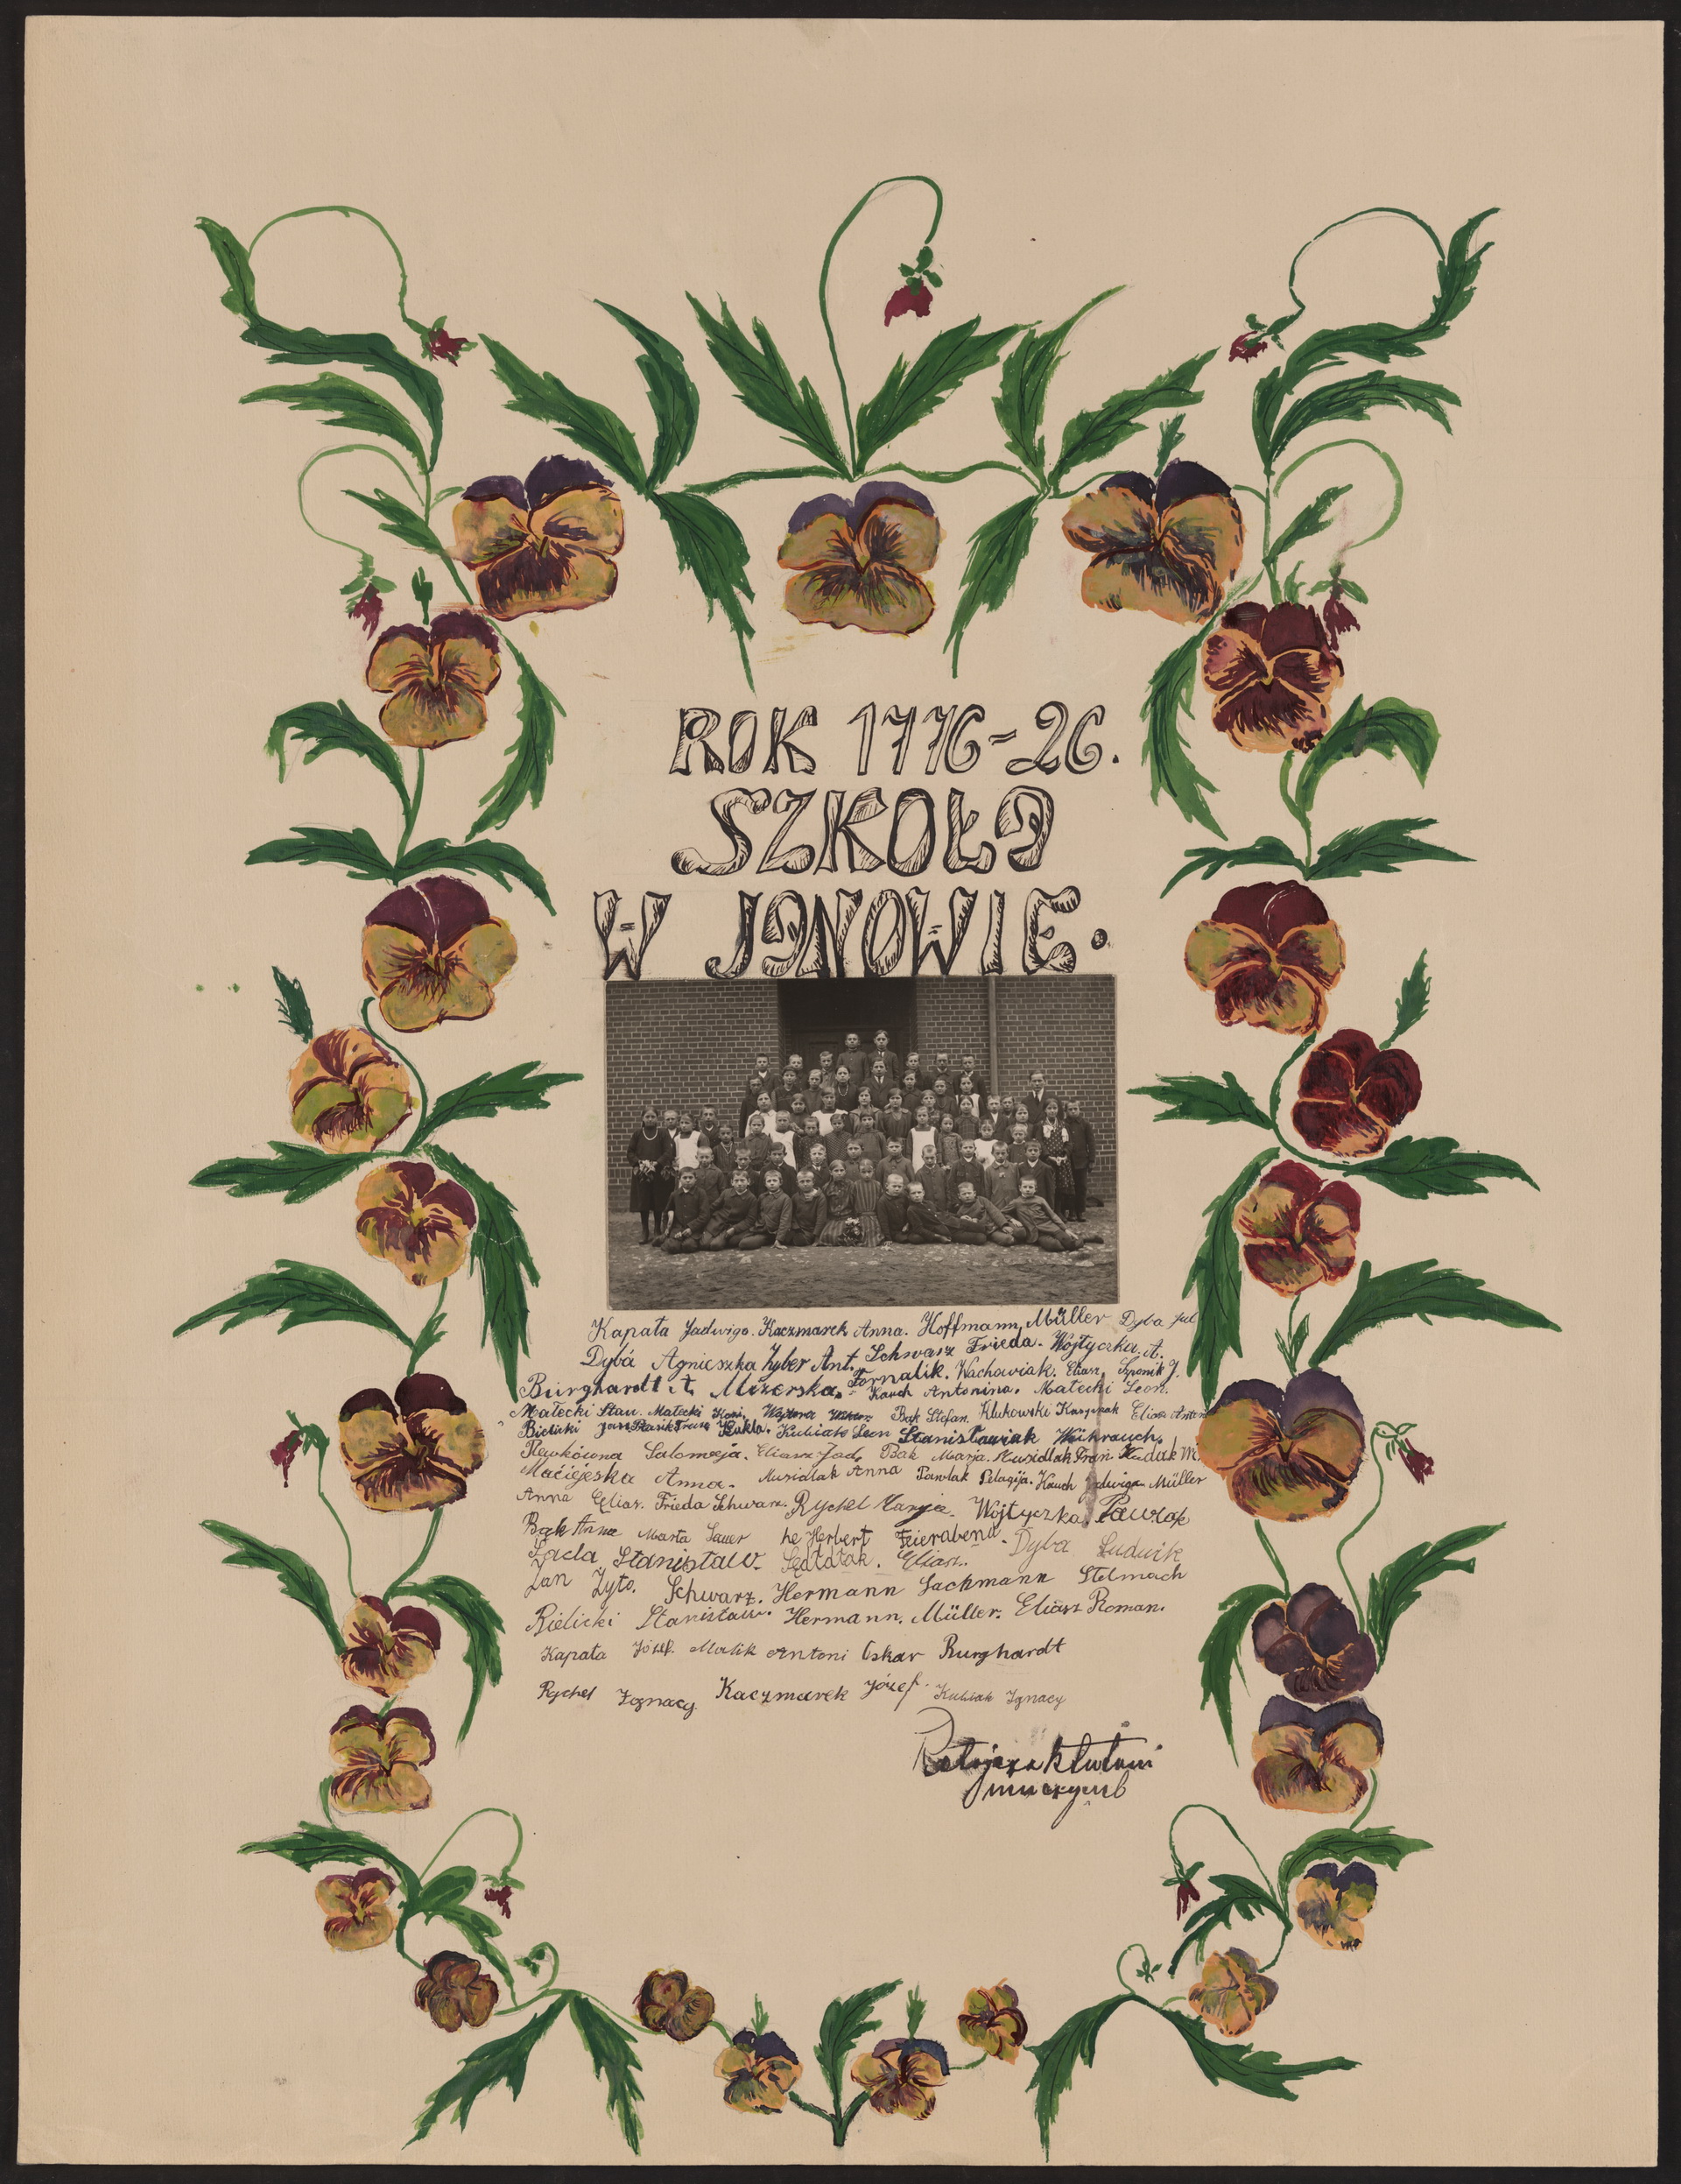 ROK 1776-26.
SZKOŁA
W JANOWIE.
Kapata Jadwiga. Kaczmarek Anna. Hoffmann, Müller Dyba Jul
Dybá Agnieszka Zyber Ant. Schwarz Frieda. Wojtyczka, A.
Burghardt A. Mizerska, Fornalik. Wachowiak. Eliasz, Sponik J.
Kauch Antonina. Małecki Leon.
Małecki Stan. Małecki Kazi. Bąk Stefan. Klukowski Kasprzak Eliasz Antoni
Bielicki Jan Kukla. Kubiak Leon Stanisławiak Wükrauch,
Salomeja. Eliasz Jad. Bąk Marja. Musidlak Fran. Kudak M.
Maciejeska Anna. Musidlak Anna Pawlak Pelagija. Kauch Jadwiga Müller
Anna Eliasz. Frieda Schwarz. Rychel Maryja. Wojtyczka, Pawlak
Bąk Anna Marta Sauer he Herbert Feierabend.
Stanisław. Eliasz. Dyba Ludwik
Jan Żyto. Schwarz. Hermann Lachmann Stelmach
Bielicki Stanisław. Hermann. Müller. Eliasz Roman.
Kapata Józef. Malik Antoni Oskar Burghardt
Rychel Ignacy Kaczmarek Józef. Kubiak Ignacy